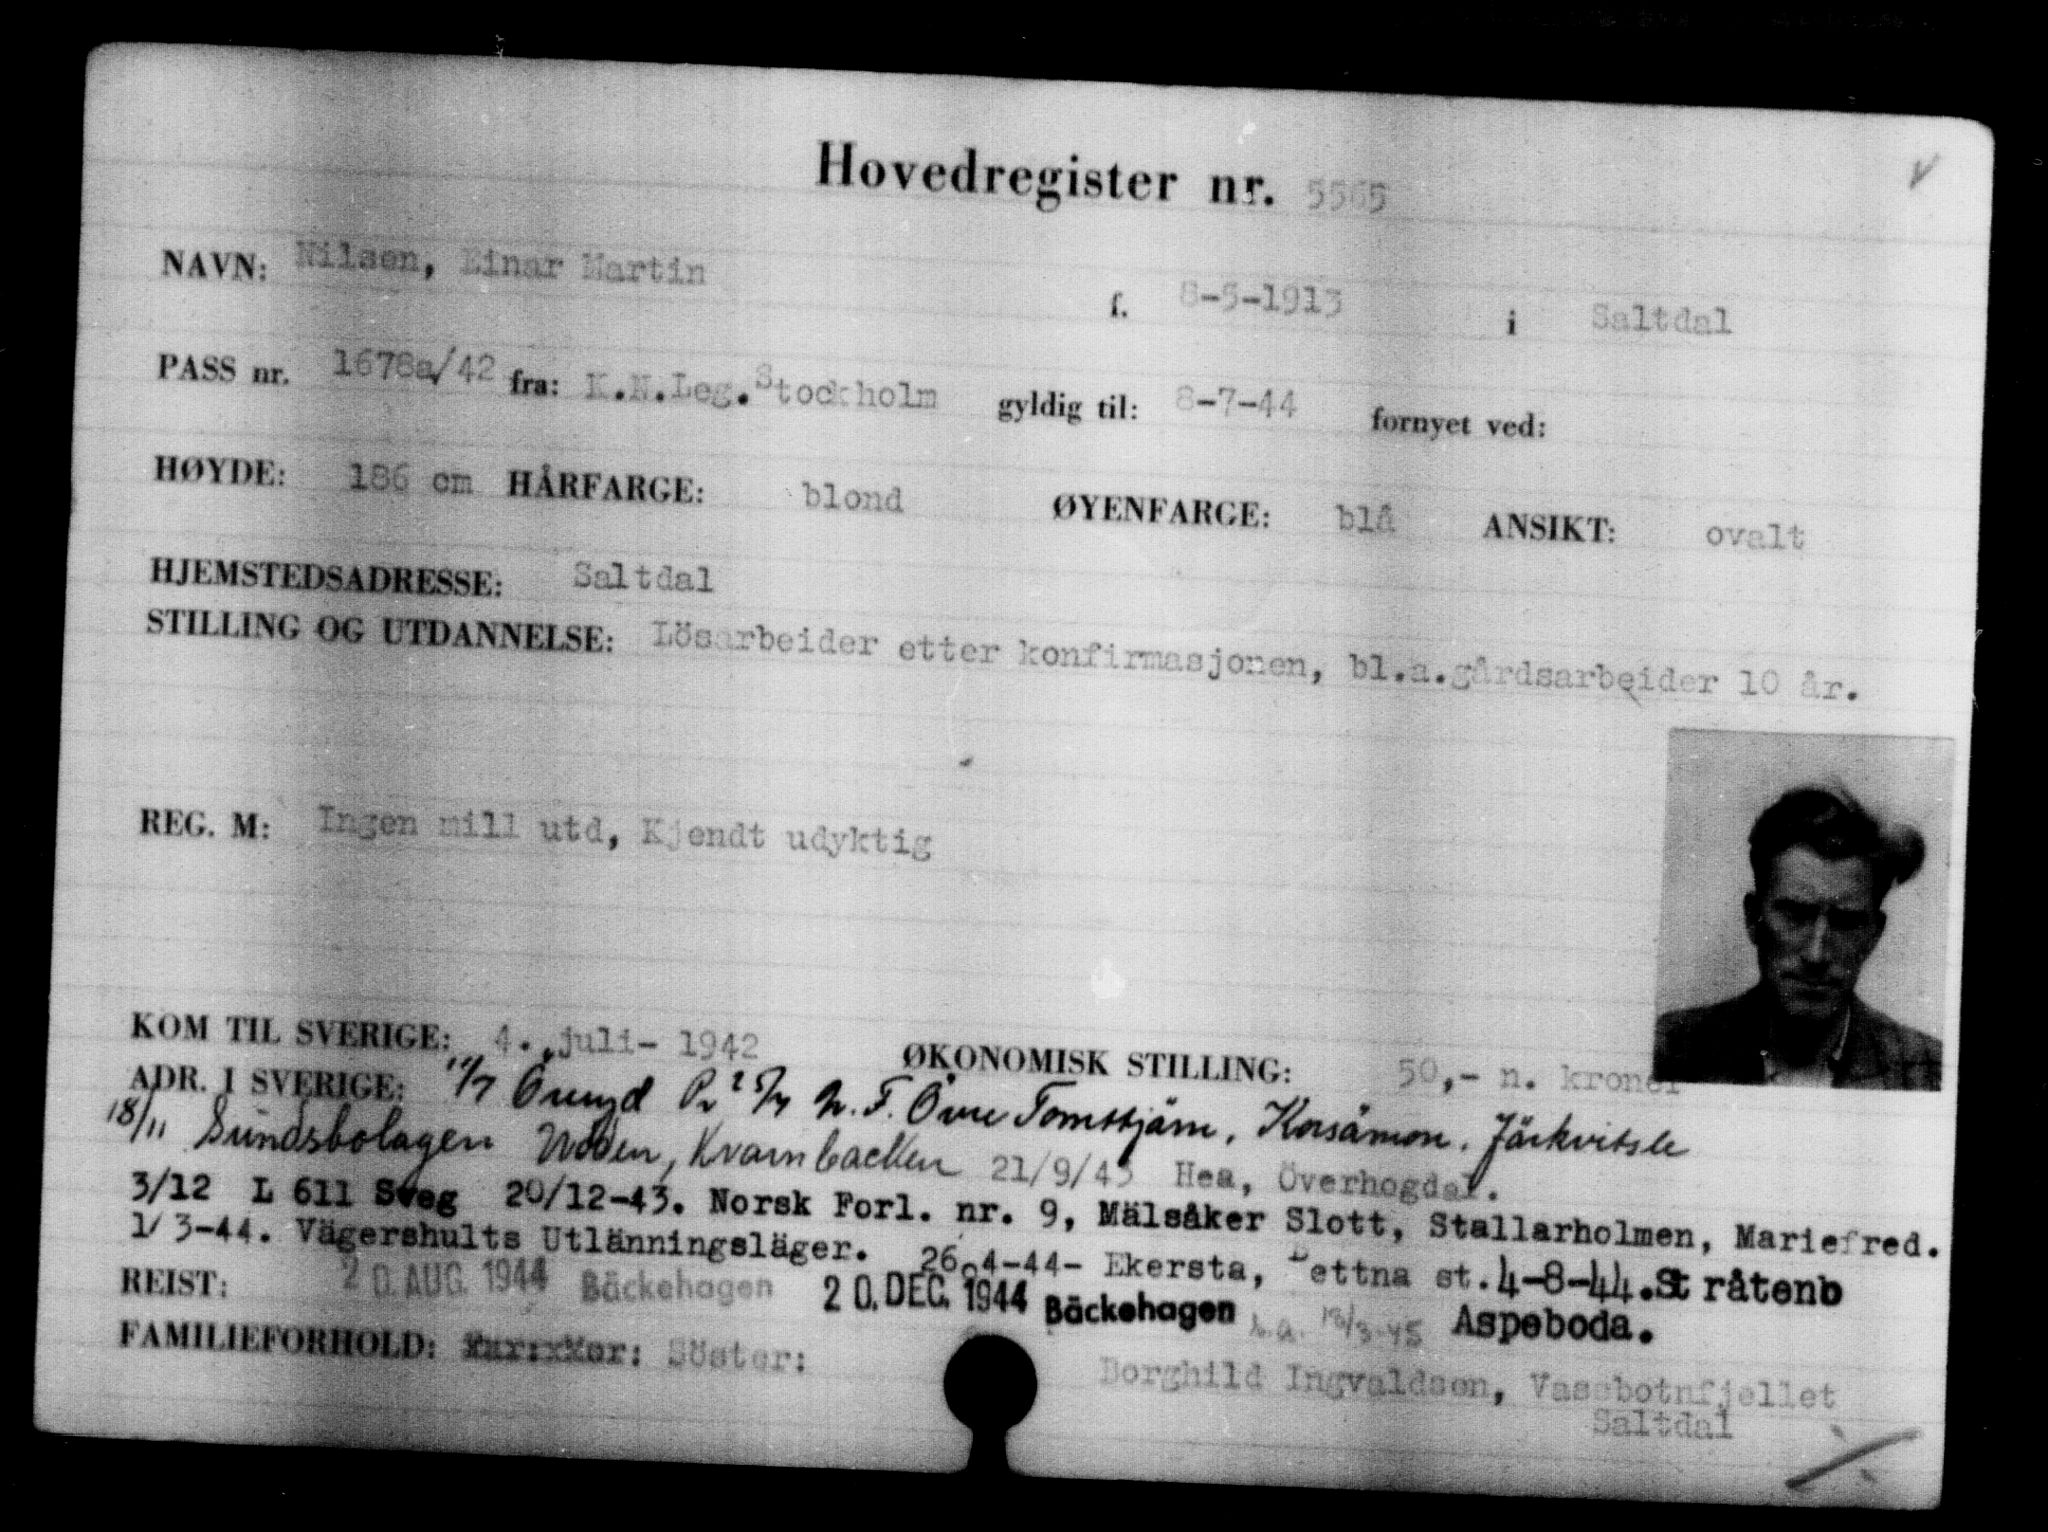 Hovedregister nr. 5565
NAVN: Nilsen, Einar Martin f. 8-5-1913 i Saltdal
PASS nr. 1678a/42 fra: K.N.Leg.Stockholm gyldig til: 8-7-44 fornyet ved:
HØYDE: 186 cm HÅRFARGE: blond ØYENFARGE: blå ANSIKT: ovalt
HJEMSTEDSADRESSE: Saltdal
STILLING OG UTDANNELSE: Lösarbeider etter konfirmasjonen, bl.a.gårdsarbeider 10 år.
REG. M: Ingen mill utd, Kjendt udyktig
KOM TIL SVERIGE: 4. juli- 1942 ØKONOMISK STILLING: 50,- n. kroner
ADR. I SVERIGE: Öreryd Pr 25/7 Övre Tomstjärn, Korsåmon, Järkvitsle
18/11 Sundsbolagen Woden, Kvarnbacken 21/9/43 Hea, Överhogdal.
3/12 L 611 Sveg 20/12-43. Norsk Forl. nr. 9, Mälsåker Slott, Stallarholmen, Mariefred.
1/3-44. Vägershults Utlänningsläger. 26.4-44- Ekersta, Bettna st. 4-8-44. Stråtenb
REIST: 20. AUG. 1944 Bäckehagen 20. DEC. 1944 Bäckehagen 13/3-45 Aspeboda.
FAMILIEFORHOLD: Söster: Borghild Ingvaldsen, Vassbotnfjellet
Saltdal